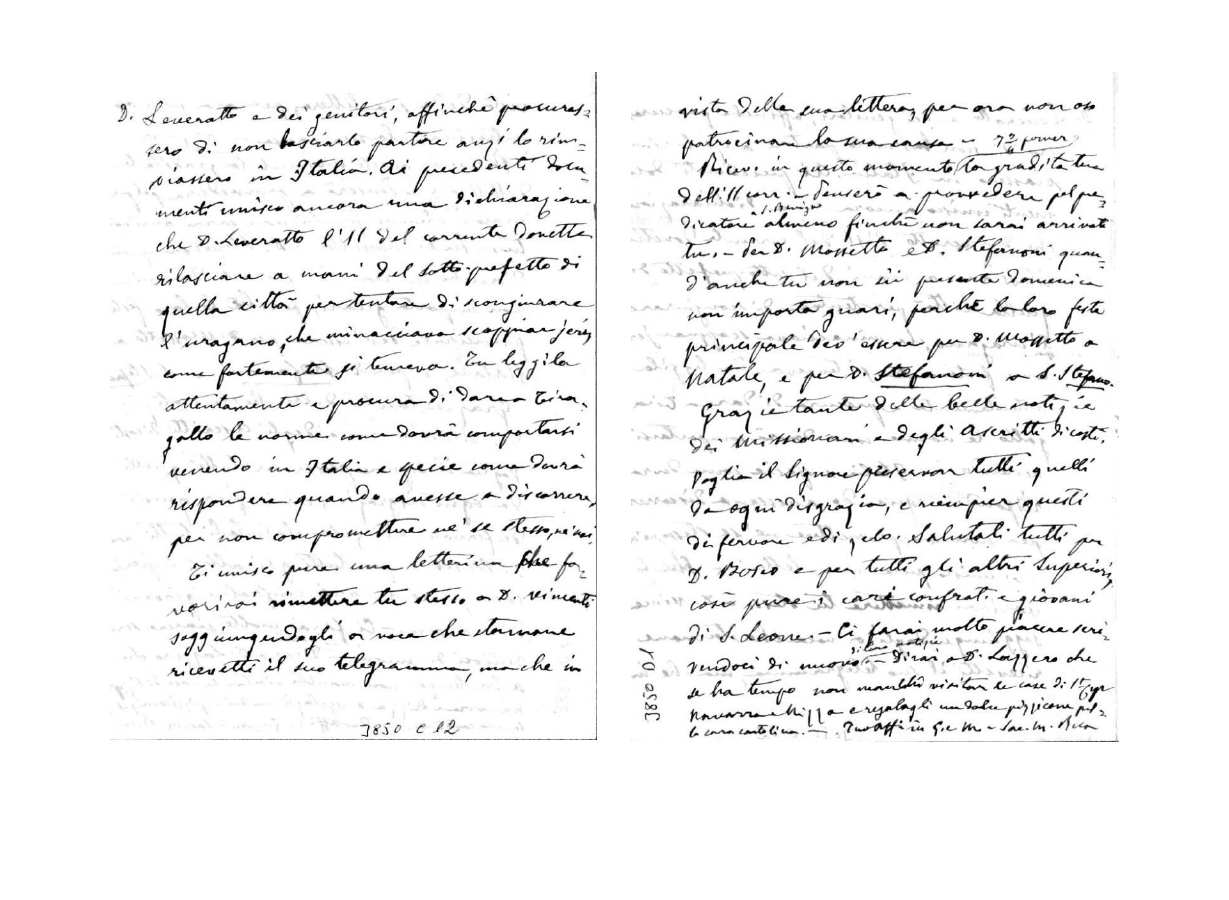 D. Leveratto e dei genitori, affinchè procuras-
sero di non lasciarlo partire anzi lo rin-
viassero in Italia. Ai precedenti docu-
menti unisco ancora una dichiarazione
che D. Leveratto l'11 del corrente dovette
rilasciare a mani del Sotto-prefetto di
quella città per tentare di scongiurare
l'uragano, che minacciava scoppiar jeri,
come fortemente si temeva. Tu leggila
attentamente e procura di dare a Tira-
gallo le norme come dovrà comportarsi
venendo in Italia e specie come dovrà
rispondere quando avesse a discorrere,
per non compromettere nè se stesso, nè noi.
Ti unisco pure una letterina che fa-
vorirai rimettere tu stesso a D. Vincenti
soggiungendogli a voce che stamane
ricevetti il suo telegramma, ma che in
J850 C 12
vista della sua lettera, per ora non oso
patrocinare la sua causa
Ricevo in questo momento la gradita tua
dell'11 corr. - Penserò a provvedere pel pe-
dicatore almeno finchè non sarai arrivato
tu. - Per D. Mossetto e D. Stefanoni quan-
d'anche tu non sii presente domenica
non importa guari, perchè la loro festa
principale dev'essere per D. Mossetto a
Natale, e per D. Stefanoni a S. Stefano.
Grazie tante delle belle notizie
dei Missionari e degli Ascritti di costì.
Voglia il Signore preservar tutti quelli
da ogni disgrazia, e riempier questi
di fervore e di zelo. Salutali tutti per
D. Bosco e per tutti gli altri Superiori,
così pure i cari confrati e giovani
di S. Leone. - Ci farai molto piacere scri-
vendoci di nuovo. - Dirai a D. Lazzero che
se ha tempo non manchi visitar le case di St Cyr
Navarra e Nizza e regalagli un dolce pizzicone pel-
la cara cartolina. - Tuo aff in G. e M. - Sac. M. Rua
J850 D1